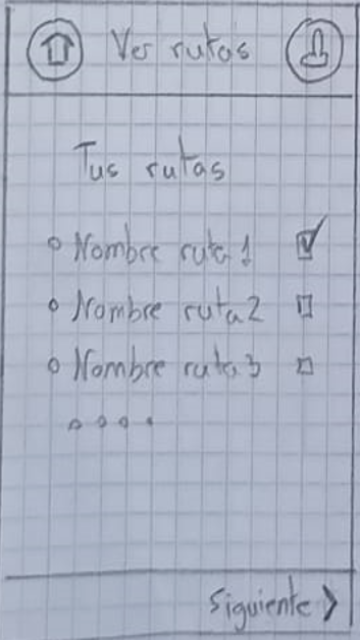 Ver rutas
Tus rutas
Nombre ruta 1
Nombre ruta 2
Nombre ruta 3
Siguiente >